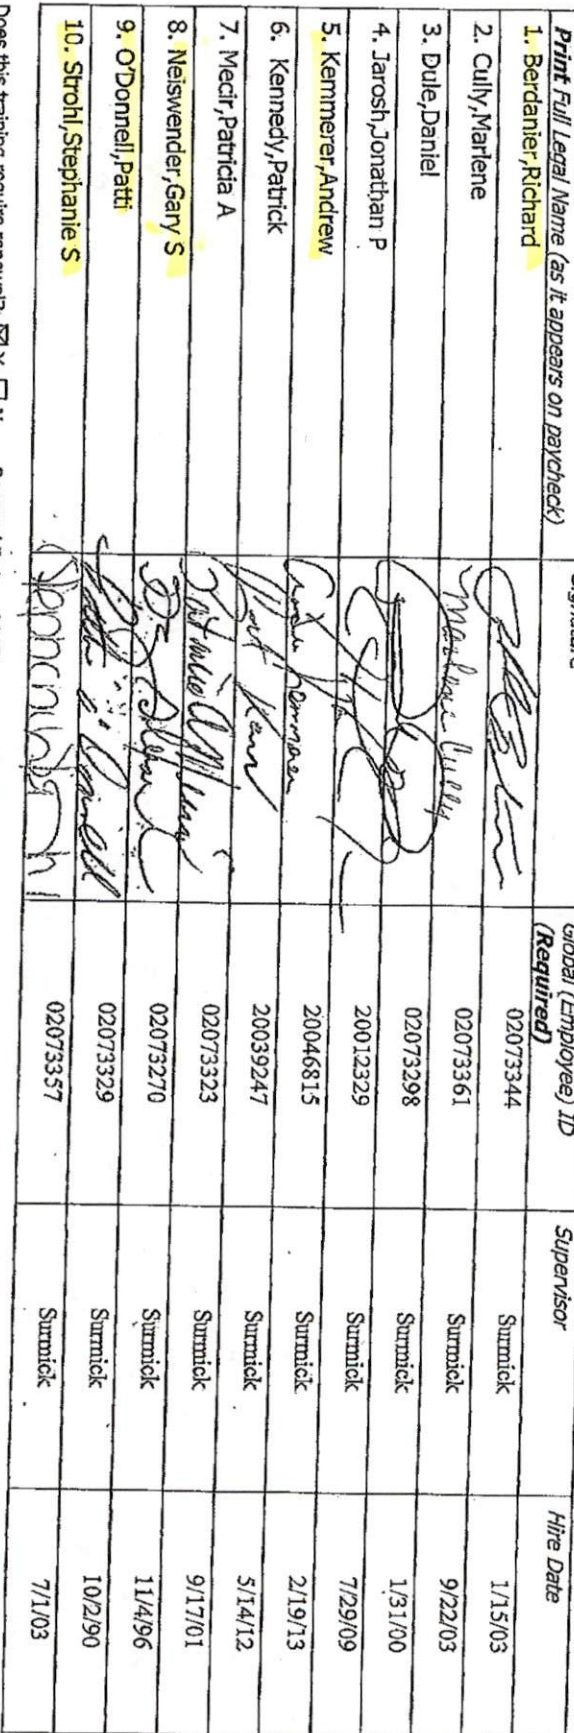 Print Full Legal Name (as it appears on paycheck) Signature Global (Employee) ID (Required) Supervisor Hire Date
1. Berdanier,Richard 02073344 Surmick 1/15/03
2. Cully,Marlene Marlene Cully 02073361 Surmick 9/22/03
3. Dule,Daniel 02073298 Surmick 1/31/00
4. Jarosh,Jonathan P 20012329 Surmick 7/29/09
5. Kemmerer,Andrew 20046815 Surmick 2/19/13
6. Kennedy,Patrick 20039247 Surmick 5/14/12
7. Mecir,Patricia A 02073323 Surmick 9/17/01
8. Neiswender,Gary S 02073270 Surmick 11/4/96
9. O'Donnell,Patti 02073329 Surmick 10/2/90
10. Strohl,Stephanie S 02073357 Surmick 7/1/03
Does this training require renewal? ☒ Y ☐ N